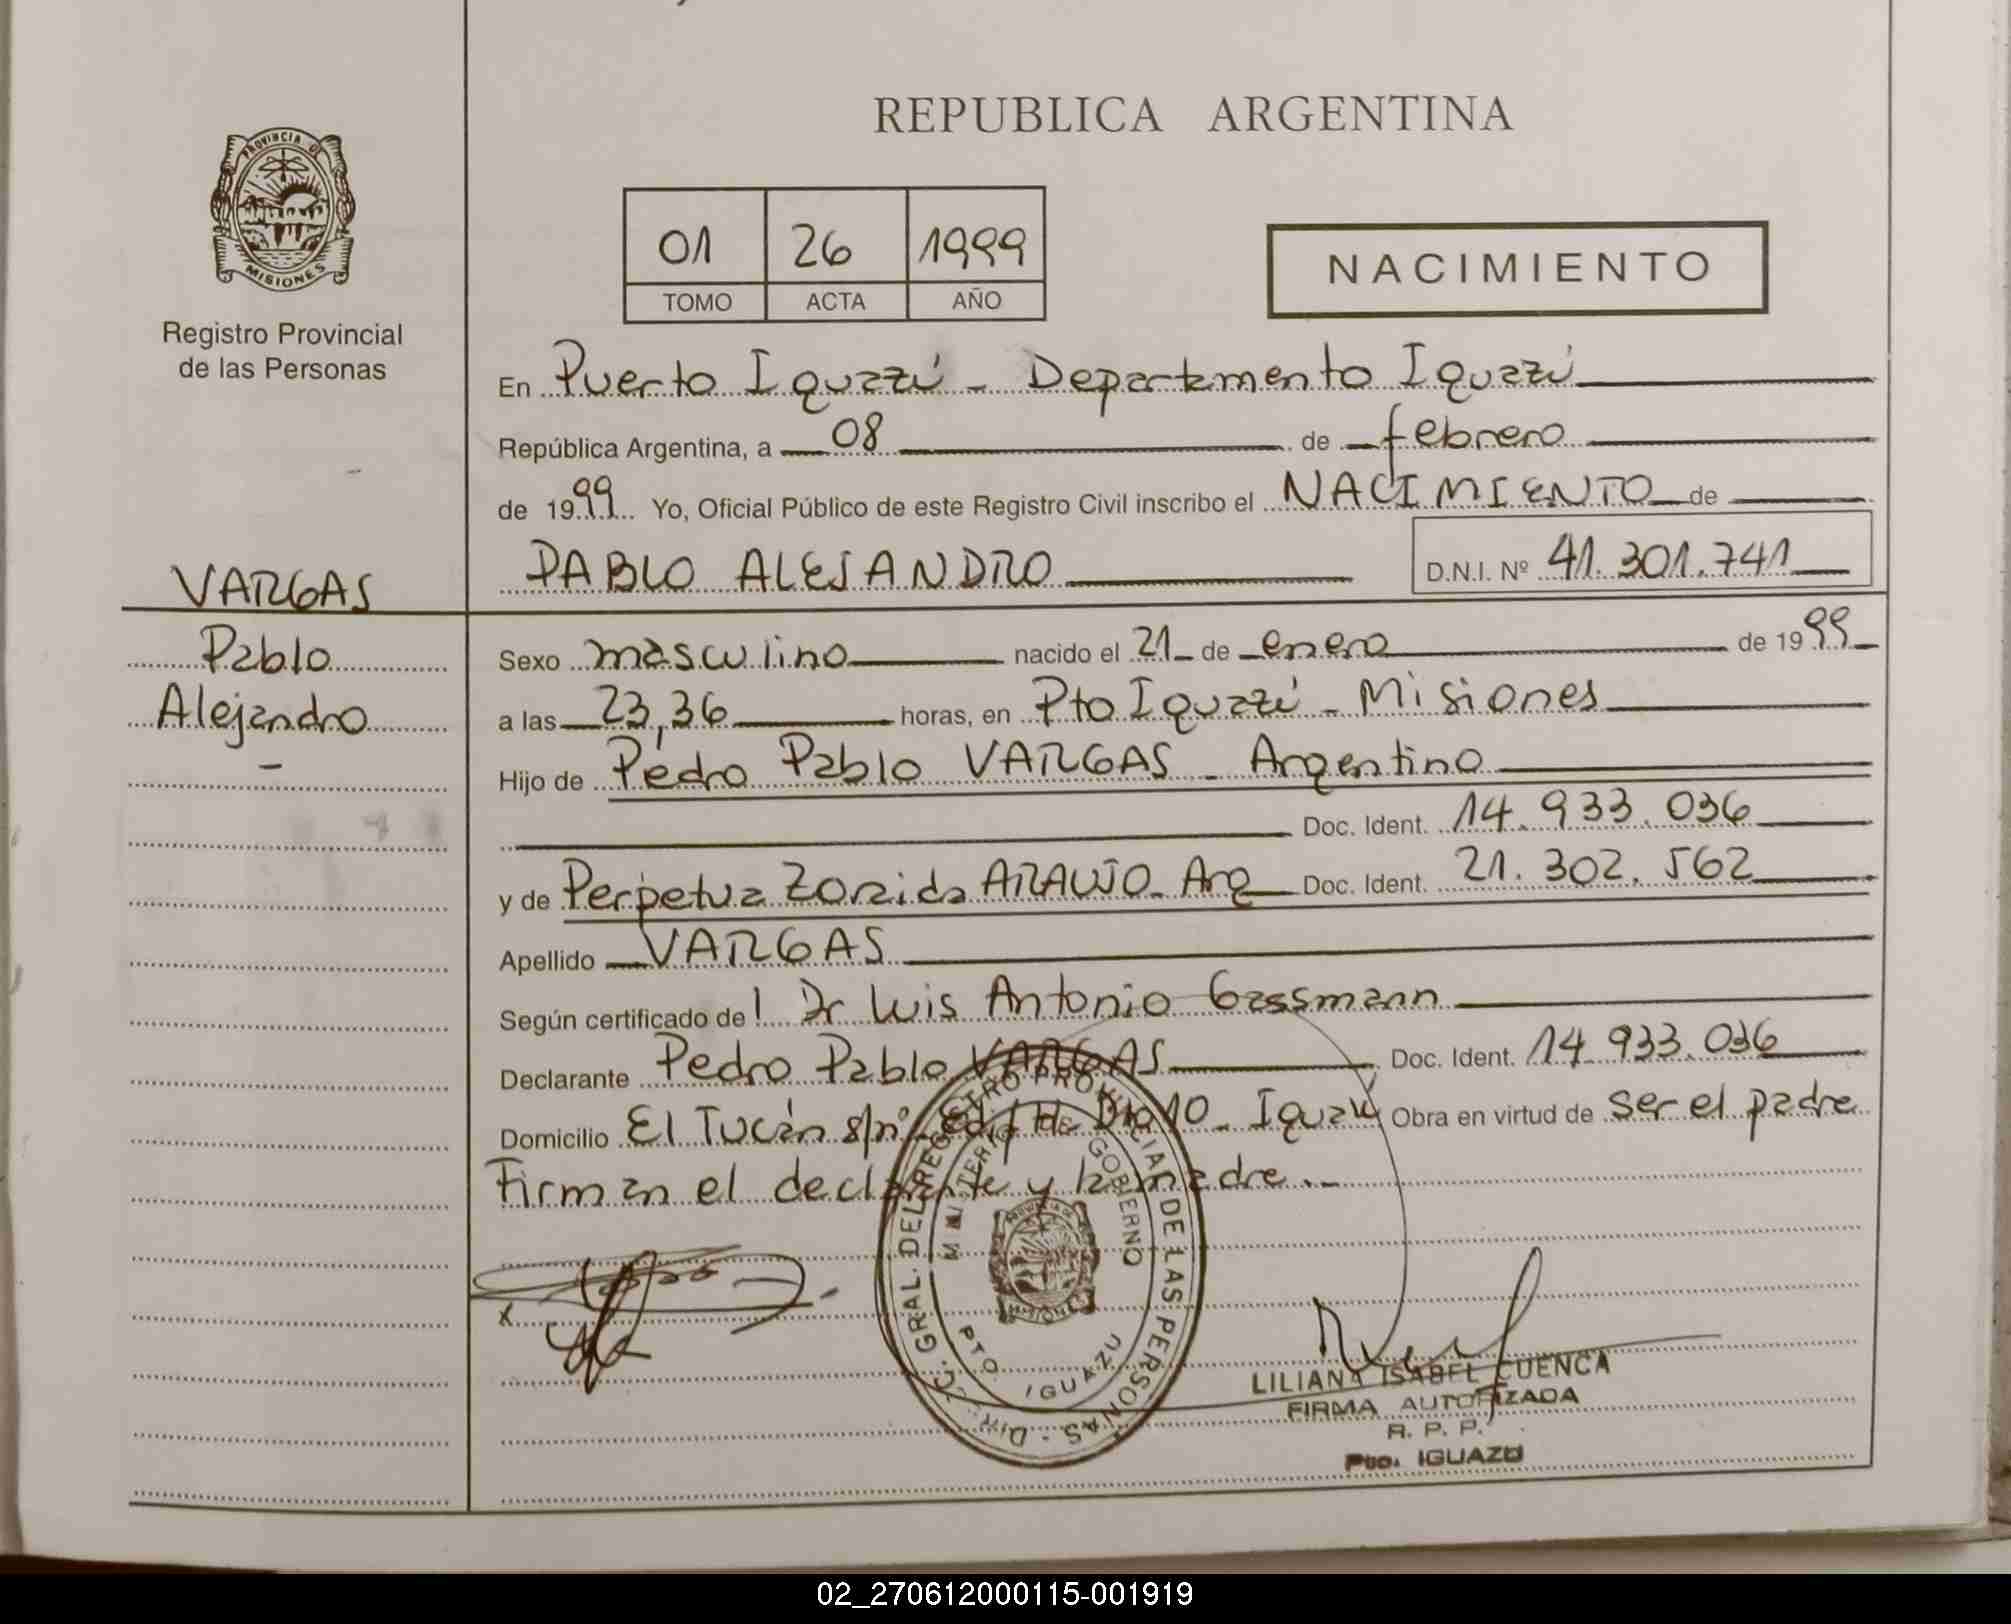 REPUBLICA ARGENTINA
PROVINCIA DE
MISIONES
Registro Provincial
de las Personas
01 26 1999
TOMO ACTA AÑO
NACIMIENTO
En Puerto Iguazú - Departamento Iguazú
República Argentina, a 08 de febrero
de 1999 Yo, Oficial Público de este Registro Civil inscribo el NACIMIENTO de
PABLO ALEJANDRO D.N.I. Nº 41.301.741
VARGAS
Pablo
Alejandro
-
Sexo masculino nacido el 21 de enero de 1999
a las 23,36 horas, en Pto Iguazú - Misiones
Hijo de Pedro Pablo VARGAS - Argentino
Doc. Ident. 14.933.036
y de Perpetua Zoraida ARAUJO - Arg Doc. Ident. 21.302.562
Apellido VARGAS
Según certificado del Dr Luis Antonio Gassmann
Declarante Pedro Pablo VARGAS Doc. Ident. 14.933.036
Domicilio El Tucán s/nº Edif Dto 10 - Iguazú Obra en virtud de ser el padre
Firman el declarante y la madre.-
DIR. GRAL. DEL REGISTRO PROVINCIAL DE LAS PERSONAS -
MINISTERIO DE GOBIERNO
MISIONES
PTO IGUAZU
x
LILIANA ISABEL CUENCA
FIRMA AUTORIZADA
R. P. P.
Pto. IGUAZU
02_270612000115-001919